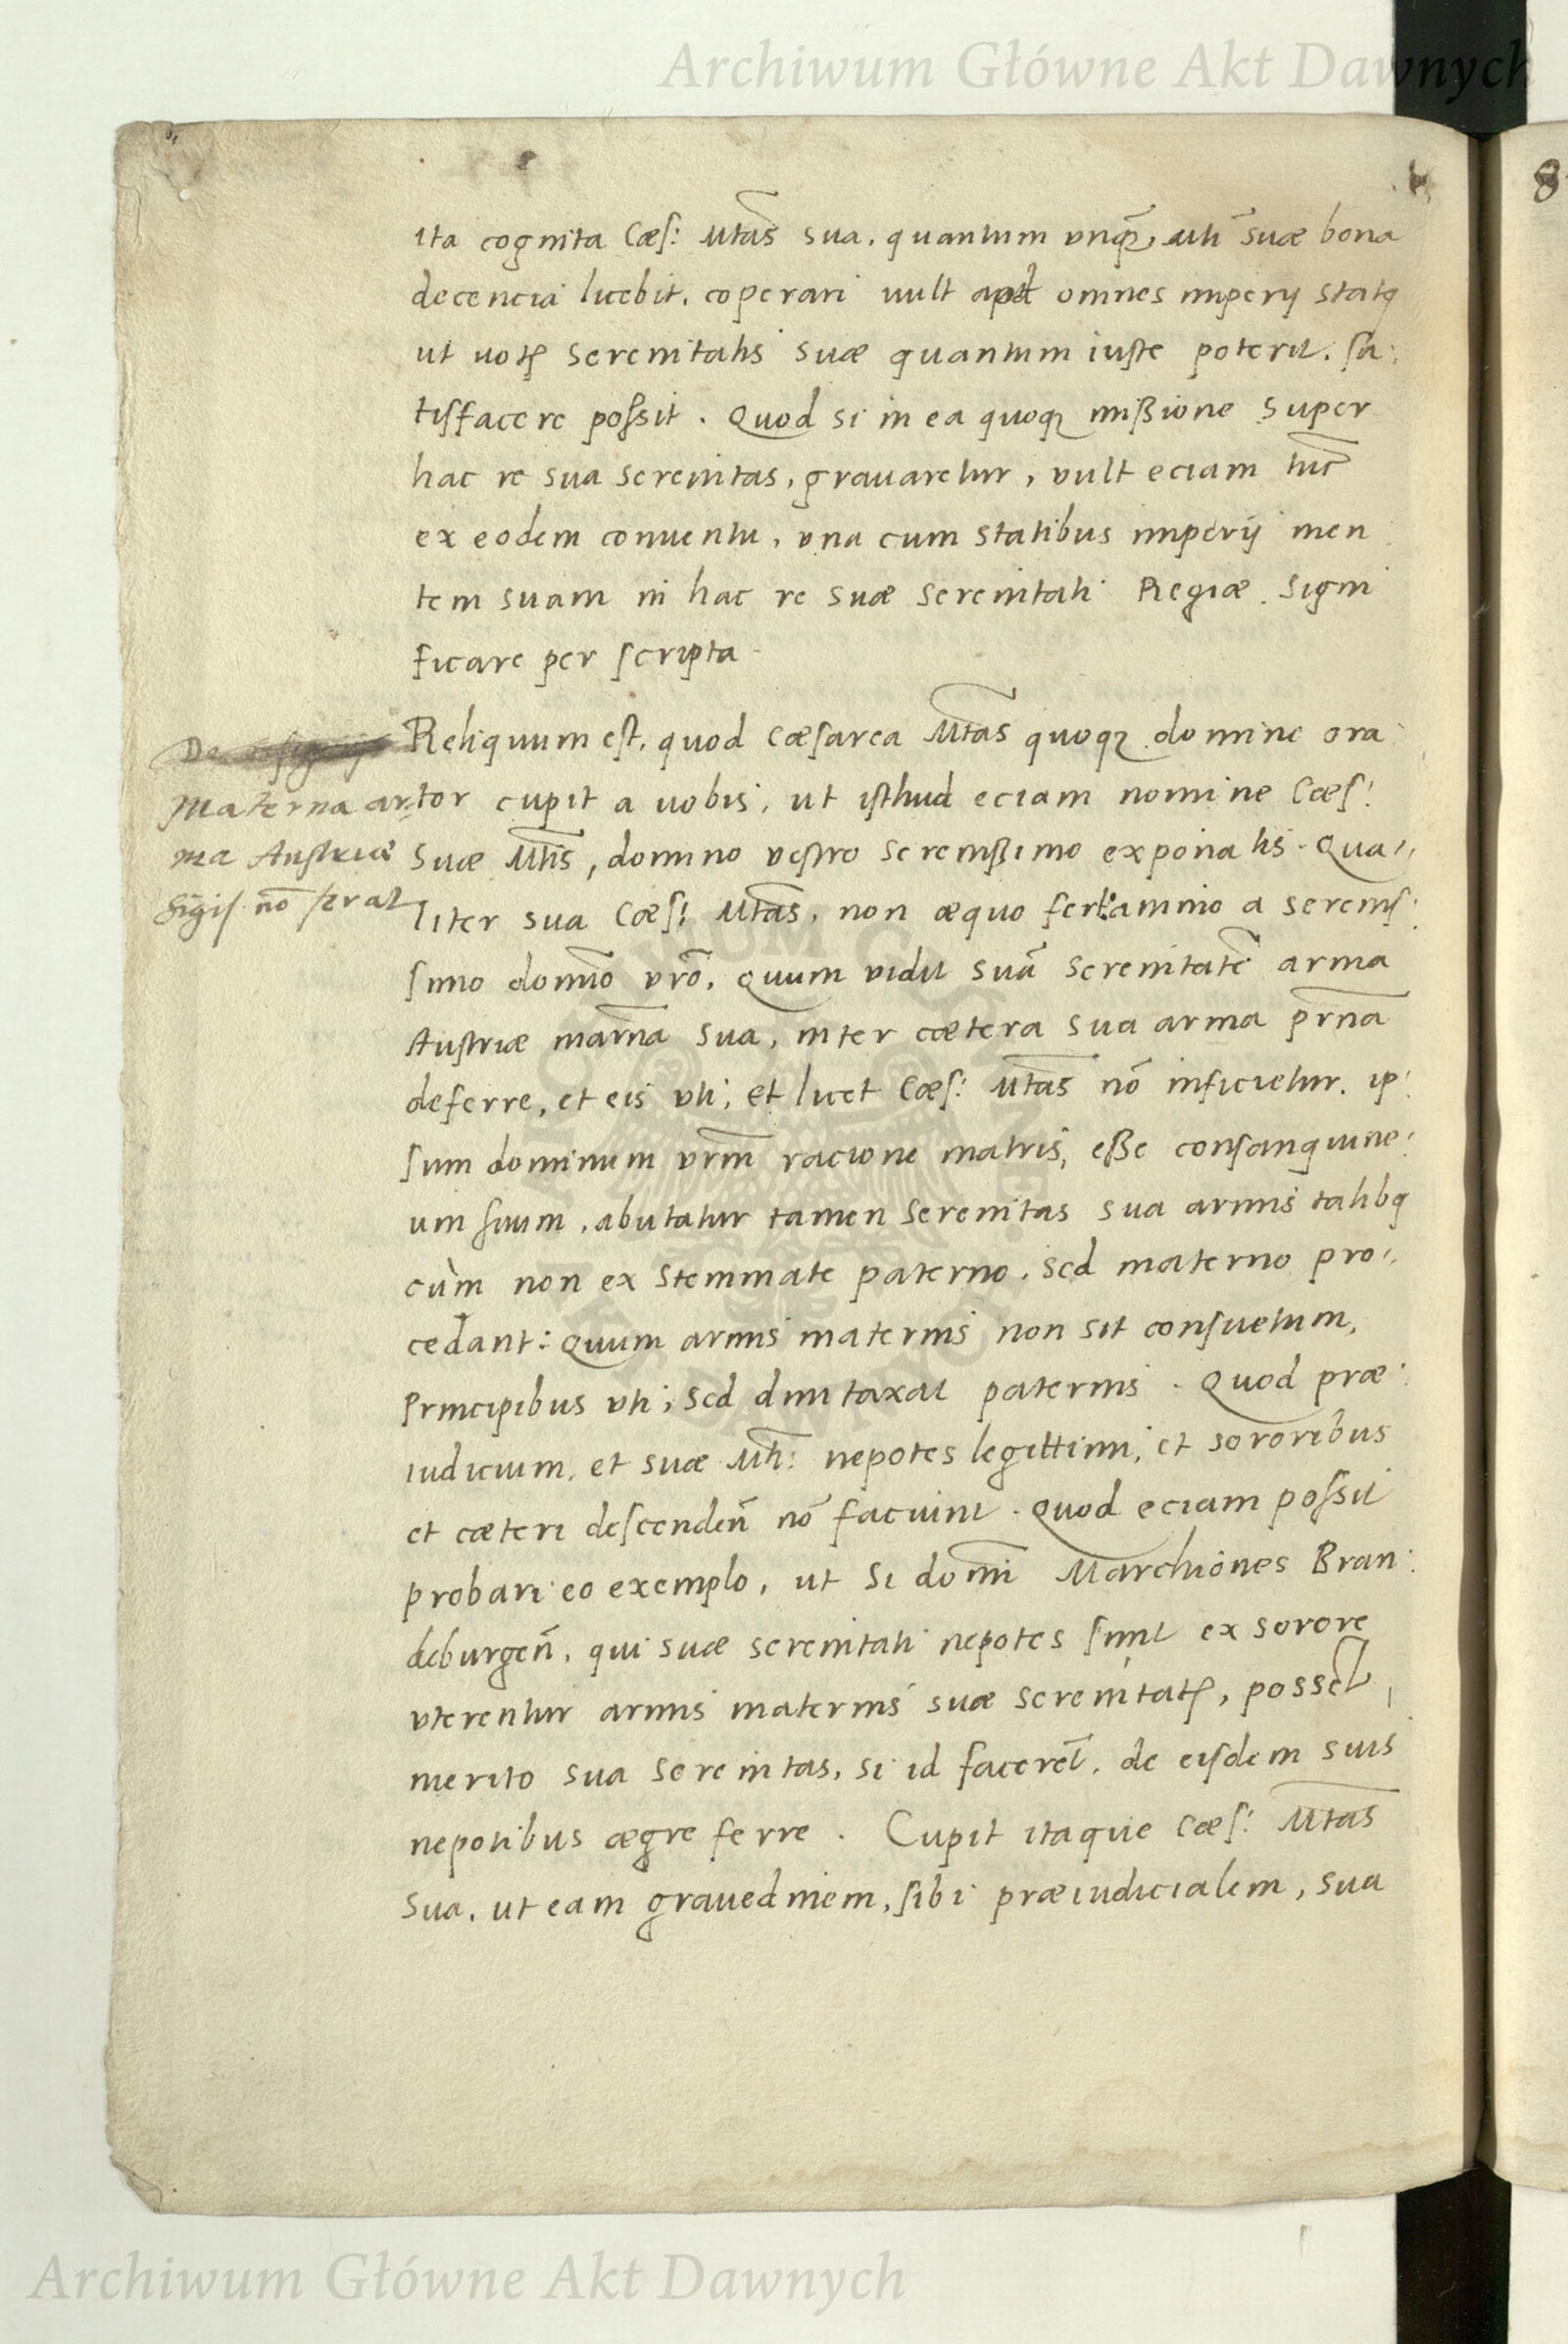 Archiwum Główne Akt Dawnych
8
ita cognita Cæſ: Mtas sua, quantum vnq̃, Mti suæ bona
decencia licebit, coperari uult apd omnes imperij statꝯ
ut uotꝭ serenitatis suæ quantum iuste poterit, sa:
tiſfacere poſsit. Quod si in ea quoqꝫ miſsione super
hac re sua serenitas, grauaretur, vult eciam tũc
ex eodem conuentu, vna cum statibus imperij men
tem suam in hac re suæ serenitati Regiæ. signi
ficare per ſcripta.
Reliquum est, quod Cæſarea Mtas quoqꝫ domine ora
tor cupit a uobis, ut iſthud eciam nomine Cæſ:
suæ Mtis, domino vestro serenißimo exponatis. Qua:
liter sua Cæſ: Mtas, non æquo fert animo a sereniſ:
ſimo domĩo vrõ, quum vidit suã serenitatẽ arma
Austriæ mat̃na sua, inter cætera sua arma pr̃na
deferre, et eis vti, et licet Cæſ: Mtas nõ inficietur, ip:
ſum dominum vrm̃ racione matris, eße consanguine:
um ſuum, abutatur tamen serenitas sua armis talibꝯ
cùm non ex stemmate paterno, sed materno pro:
cedant: Quum armis maternis non sit conſuetum,
Principibus vti, sed dumtaxat paternis. Quod præ:
iudicium, et suæ Mti: nepotes legittimi, et sororibus
et cæteri deſcendeñ nõ faciunt. Quod eciam poſsit
probari eo exemplo, ut si domĩ Marchiones Bran:
deburgeñ, qui suæ serenitati nepotes ſunt ex sorore
vterentur armis maternis suæ serenitatꝭ, posset
merito sua serenitas, si id facerẽt, de eiſdem suis
nepotibus ægre ferre. Cupit itaque Cæſ: Mtas
sua, ut eam grauedinem, ſibi præiudicialem, sua
De
Materna ar
ma Austriæ
Sigiſ. nõ ferat
Archiwum Główne Akt Dawnych